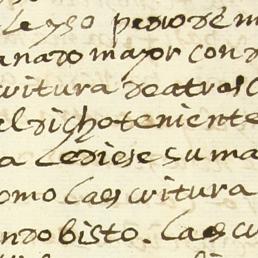 leyso pedro de m
anado mayor con d
critura de atras c
el dicho teniente
a le diese su ma
omo la escritura
ando bisto. la esc